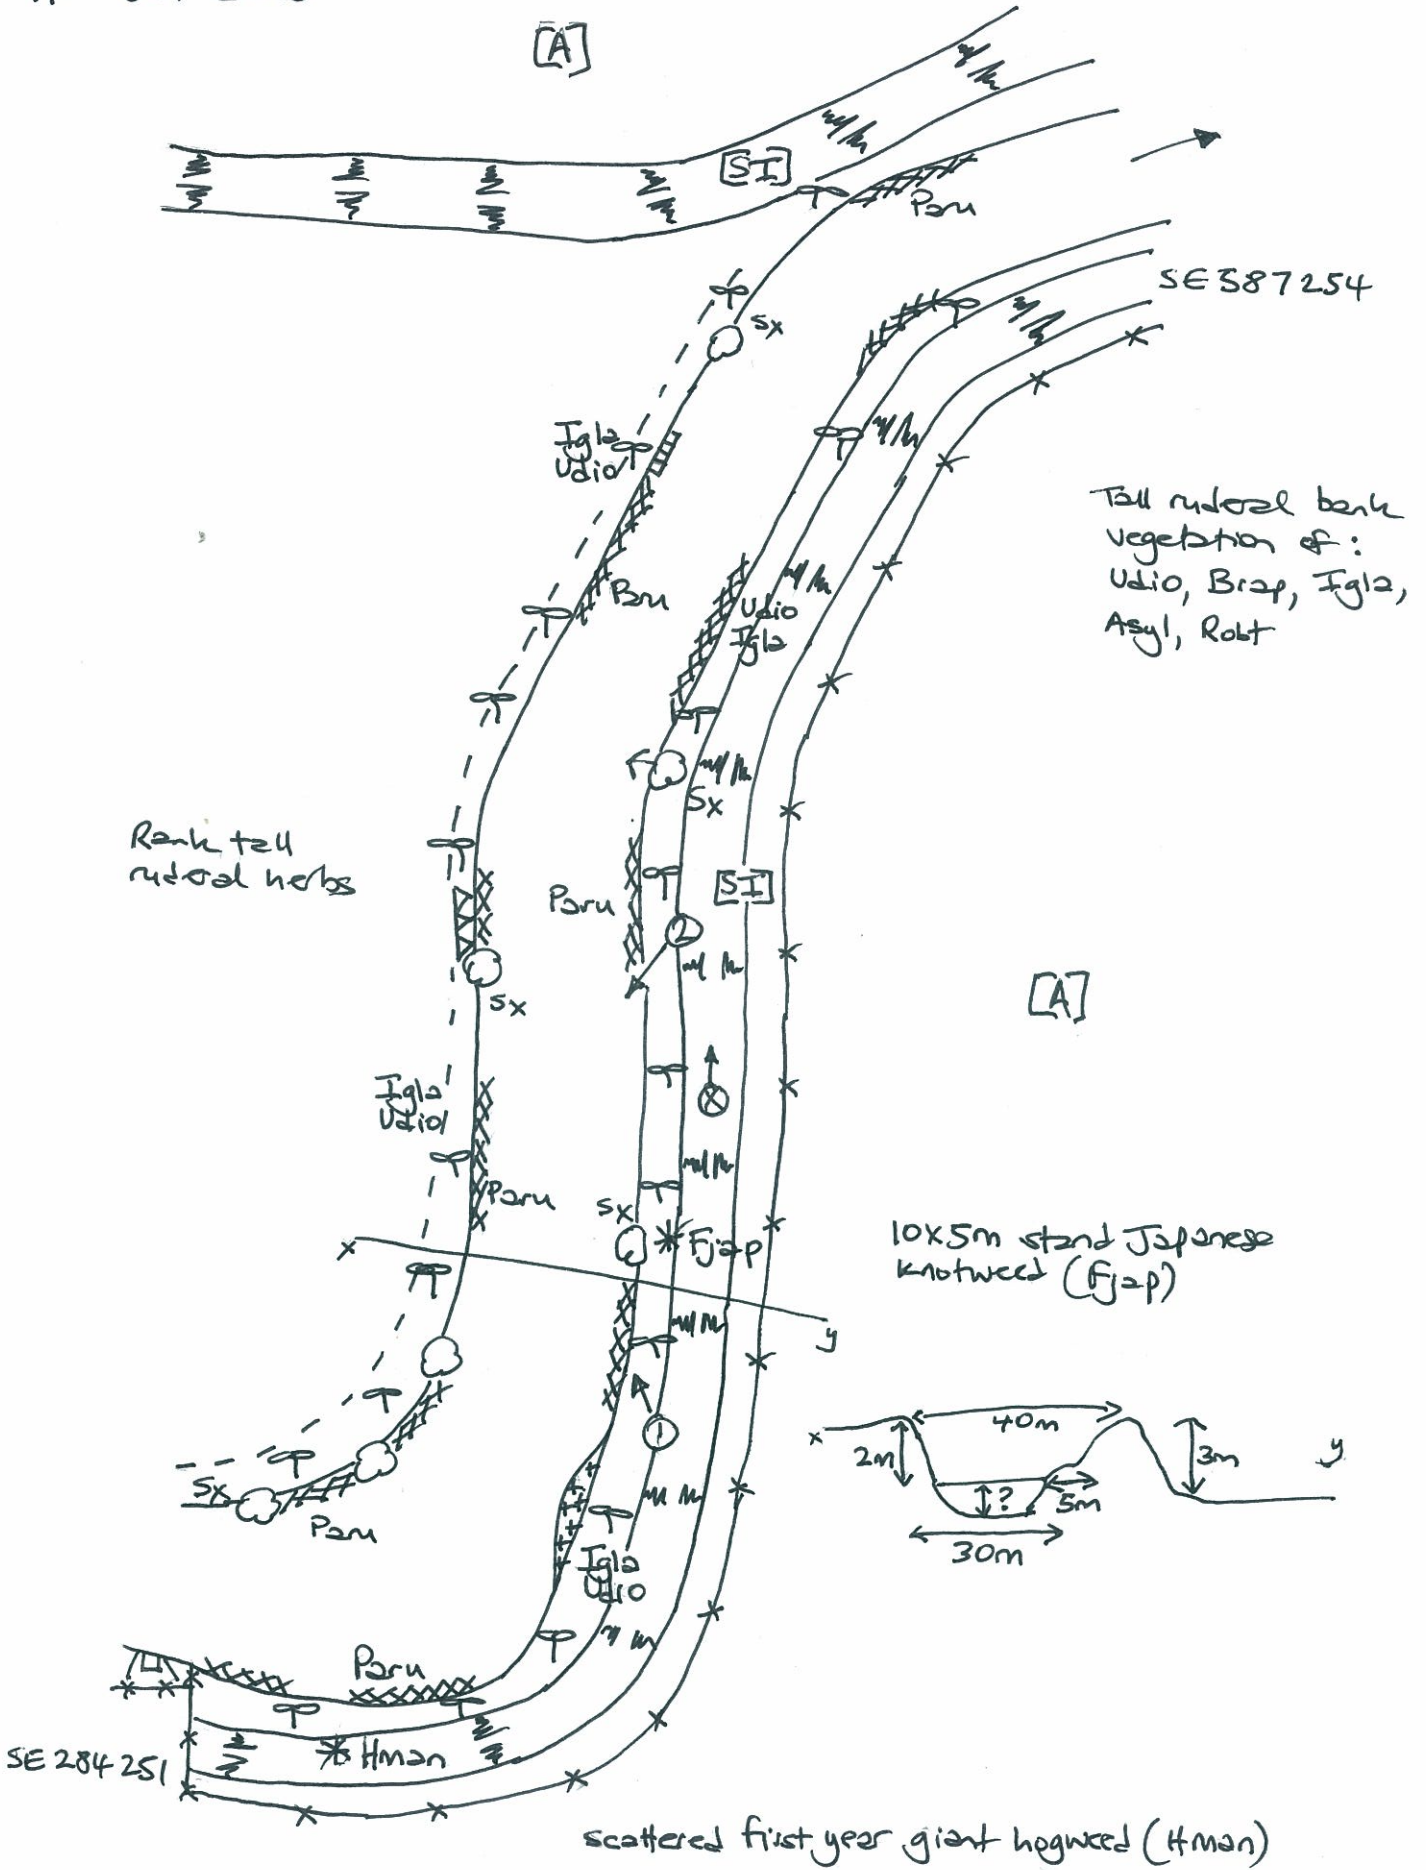 [A]
[SI]
Paru
SE 587254
Sx
Igla
Udio
Tall ruderal bank
vegetation of:
Udio, Brap, Igla,
Asyl, Robt
Paru
Udio
Igla
Sx
Rank tall
ruderal herbs
Paru
[SI]
2
Sx
[A]
Igla
Udio
Paru
Sx
Fjap
10x5m stand Japanese
knotweed (Fjap)
x
y
1
x
40m
2m
3m
y
?
5m
30m
Sx
Paru
Igla
Udio
Paru
SE 284251
Hman
scattered first year giant hogweed (Hman)